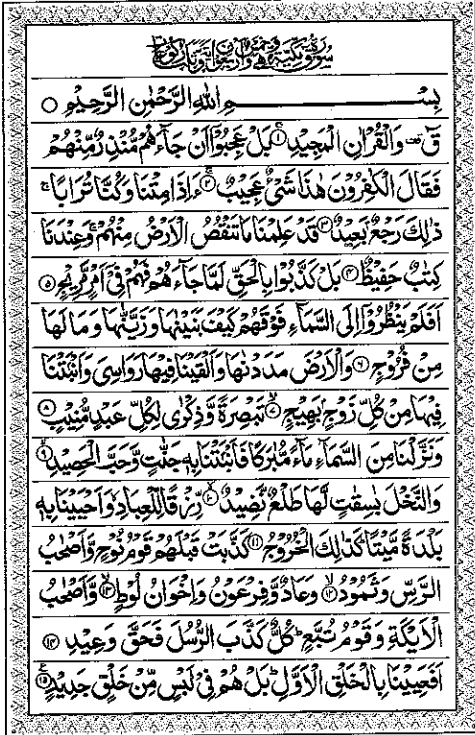 بِسْمِ اللّٰهِ الرَّحْمٰنِ الرَّحِيْمِ ○
قٓ ۚ وَالْقُرْاٰنِ الْمَجِيْدِ ۝۱ بَلْ عَجِبُوْۤا اَنْ جَآءَهُمْ مُّنْذِرٌ مِّنْهُمْ
فَقَالَ الْكٰفِرُوْنَ هٰذَا شَيْءٌ عَجِيْبٌ ۝۲ ءَاِذَا مِتْنَا وَكُنَّا تُرَابًا ۚ
ذٰلِكَ رَجْعٌۢ بَعِيْدٌ ۝۳ قَدْ عَلِمْنَا مَا تَنْقُصُ الْاَرْضُ مِنْهُمْ ۚ وَعِنْدَنَا
كِتٰبٌ حَفِيْظٌ ۝۴ بَلْ كَذَّبُوْا بِالْحَقِّ لَمَّا جَآءَهُمْ فَهُمْ فِيْۤ اَمْرٍ مَّرِيْجٍ ۝۵
اَفَلَمْ يَنْظُرُوْۤا اِلَى السَّمَآءِ فَوْقَهُمْ كَيْفَ بَنَيْنٰهَا وَزَيَّنّٰهَا وَمَا لَهَا
مِنْ فُرُوْجٍ ۝۶ وَالْاَرْضَ مَدَدْنٰهَا وَاَلْقَيْنَا فِيْهَا رَوَاسِيَ وَاَنْۢبَتْنَا
فِيْهَا مِنْ كُلِّ زَوْجٍۭ بَهِيْجٍ ۝۷ تَبْصِرَةً وَّذِكْرٰى لِكُلِّ عَبْدٍ مُّنِيْبٍ ۝۸
وَنَزَّلْنَا مِنَ السَّمَآءِ مَآءً مُّبٰرَكًا فَاَنْۢبَتْنَا بِهٖ جَنّٰتٍ وَّحَبَّ الْحَصِيْدِ ۝۹
وَالنَّخْلَ بٰسِقٰتٍ لَّهَا طَلْعٌ نَّضِيْدٌ ۝۱۰ رِّزْقًا لِّلْعِبَادِ ۙ وَاَحْيَيْنَا بِهٖ
بَلْدَةً مَّيْتًا ؕ كَذٰلِكَ الْخُرُوْجُ ۝۱۱ كَذَّبَتْ قَبْلَهُمْ قَوْمُ نُوْحٍ وَّاَصْحٰبُ
الرَّسِّ وَثَمُوْدُ ۝۱۲ وَعَادٌ وَّفِرْعَوْنُ وَاِخْوَانُ لُوْطٍ ۝۱۳ وَّاَصْحٰبُ
الْاَيْكَةِ وَقَوْمُ تُبَّعٍ ؕ كُلٌّ كَذَّبَ الرُّسُلَ فَحَقَّ وَعِيْدِ ۝۱۴
اَفَعَيِيْنَا بِالْخَلْقِ الْاَوَّلِ ؕ بَلْ هُمْ فِيْ لَبْسٍ مِّنْ خَلْقٍ جَدِيْدٍ ۝۱۵